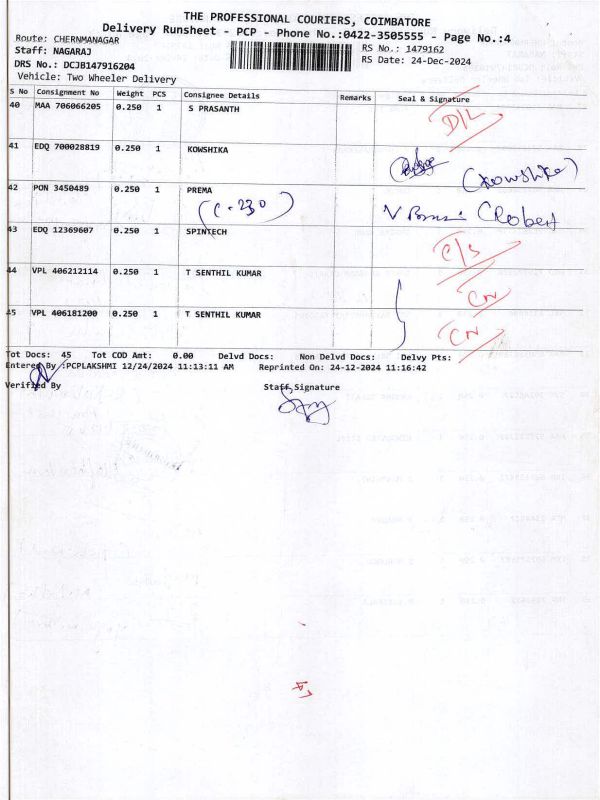 THE PROFESSIONAL COURIERS, COIMBATORE
Delivery Runsheet - PCP - Phone No.:0422-3505555 - Page No.:4
Route: CHERNMANAGAR
RS No.: 1479162
Staff: NAGARAJ
RS Date: 24-Dec-2024
DRS No.: DCJB147916204
Vehicle: Two Wheeler Delivery
S No Consignment No Weight PCS Consignee Details Remarks Seal & Signature
40 MAA 706066205 0.250 1 S PRASANTH D/L
41 EDQ 700028819 0.250 1 KOWSHIKA (Kowshika)
42 PON 3450489 0.250 1 PREMA (Robert
(C-230)
43 EDQ 12369607 0.250 1 SPINTECH C/S
44 VPL 406212114 0.250 1 T SENTHIL KUMAR CN
45 VPL 406181200 0.250 1 T SENTHIL KUMAR CN
Tot Docs: 45 Tot COD Amt: 0.00 Delvd Docs: Non Delvd Docs: Delvy Pts:
Entered By :PCPLAKSHMI 12/24/2024 11:13:11 AM Reprinted On: 24-12-2024 11:16:42
Verified By Staff Signature